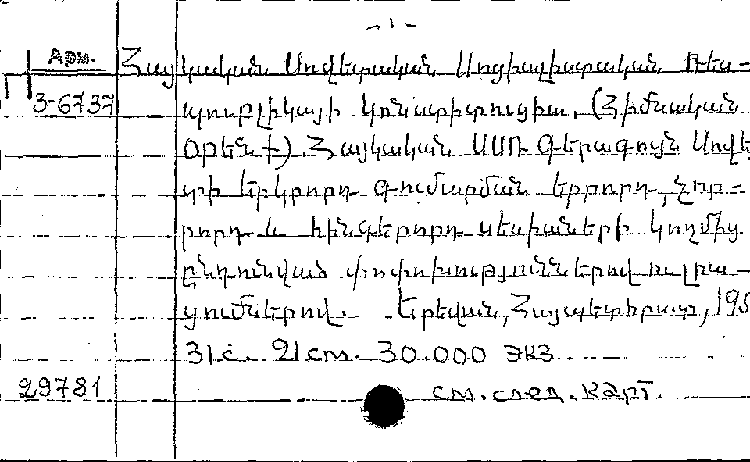 - 1 -
Арм. Հայկական Սովետական Սոցիալիստական Ռես-
3-6737 պուբլիկայի կոնստիտուցիա, (Հիմնական
օրենք) Հայկական ՍՍՌ Գերագույն Սովե
տի երկրորդ գումարման երրորդ, չոր-
րորդ և հինգերորդ սեսիաների կողմից
ընդունված փոփոխություններով ու լրա-
ցումներով. Երեվան, Հայպետհրատ, 195
31с. 21см. 30.000 экз
29781 см. след. карт.